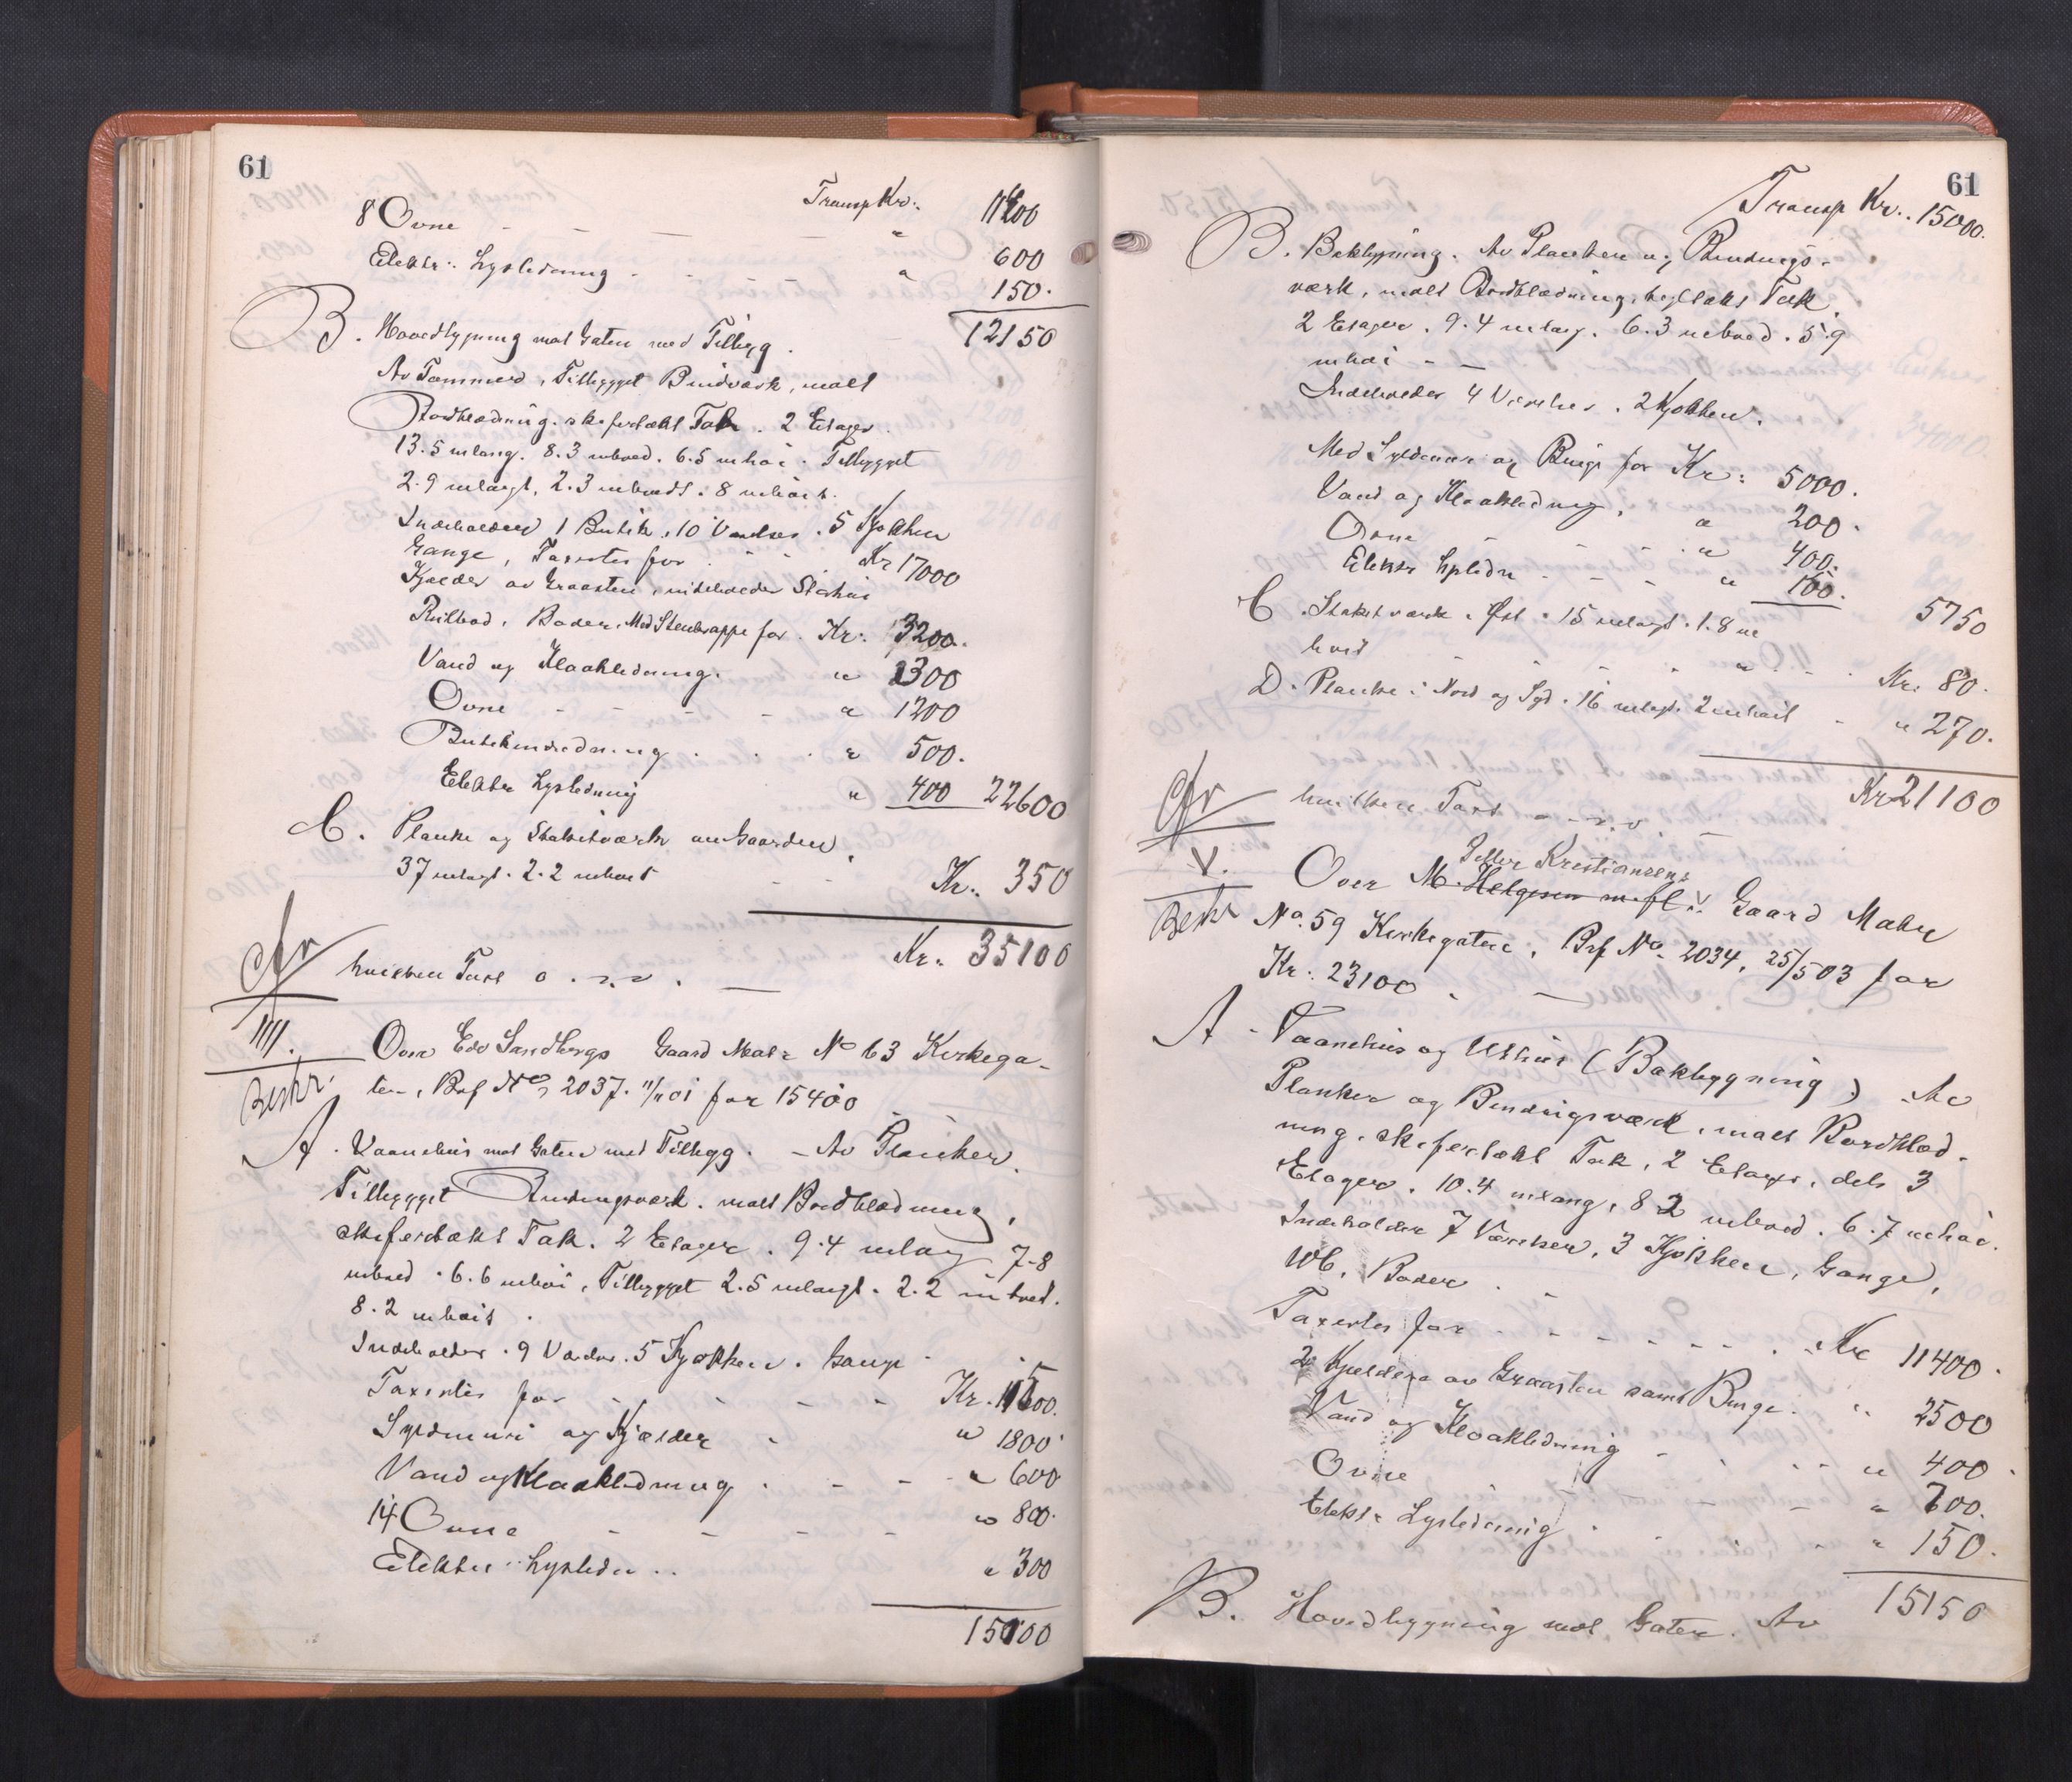 61
Transp Kr: 11400
8 Ovne - - - - " 600
Elektr: Lysledning - - - " 150.
12150
B. Hovedbygning mot Gaten med Tilbygg.
Av Tømmer, Tilbygget Bindværk, malt
Bordklædning, skifertækt Tak. 2 Etager.
13.5 m lang. 8.3 m bred. 6.5 m høi. Tilbygget
2.9 m langt, 2.3 m bredt. 8 m høit.
Indeholder 1 Butik, 10 Værelser. 5 Kjøkken
Gange, Taxertes for - - Kr 17000
Kjælder av Graasten, indeholder
Rulbod, Boder. Med Stentrappe for. Kr: 3200.
Vand og Kloakledning. " 300
Ovne - - - - " 1200
Butikindredning . . . " 500.
Elektr Lysledning " 400 22600
C. Planke og Stakitværk om Gaarden,
37 m langt. 2.2 m høit - - Kr: 350
Kr. 35100
cfr hvilken Taxt o.s.v. —
IIII. Over Edv Sandbergs Gaard Matr No 63 Kirkega-
Beskr. ten, Brf No 2037. 11/11 01 for 15400
A. Vaanehus mot Gaten med Tilbygg. - Av Planker.
Tilbygget Bindingsværk. malt Bordklædning,
skifertækt Tak. 2 Etager. 9.4 m lang 7.8
m bred. 6.6 m høi, Tilbygget 2.5 m langt. 2.2 m bred.
8.2 m høit.
Indeholder. 9 Værelser. 5 Kjøkken. Gange
Taxertes for - - - - Kr. 11500.
Syldmur og Kjælder - " 1800
Vand og Kloakledning . - - " 600
14 Ovne - - - - " 800.
Elektr: Lysledn .. " 300
15000
61
Transp Kr.. 15000.
B. Bakbygning. Av Planker og Bindings-
værk, malt Bordklædning, teglтækt Tak.
2 Etager. 9.4 m lang. 6.3 m bred. 5.9
m høi - -
Indeholder 4 Værelser. 2 Kjøkken.
Med Syldmur og Binge for Kr: 5000.
Vand og Kloakledning, " 200.
Ovne - - - - " 400.
Elektr Lysledn - - - " 150.
5750
C. Stakitværk i Øst. 15 m langt. 1.8 m
høit - - - - - - Kr. 80.
D. Planke i Nord og Syd. 16 m langt. 2 m høit - " 270.
Kr 21100
cfr hvilken Taxt o.s.v. —
V. Peller Kristiansens
Over M. Helgesen m. fl.s Gaard Matr
Beskr No. 59 Kirkegaten, Brf No. 2034, 25/5 03 for
Kr: 23100. —
A. Vaanehus og Uthus (Bakbygning) Av
Planker og Bindingsværk, malt Bordklæd-
ning, skifertækt Tak, 2 Etager, dels 3
Etager. 10.4 m lang, 8.2 m bred. 6.7 m høi.
Indeholder 7 Værelser, 3 Kjøkken, Gange,
WC, Boder. -
Taxertes for - - - - - Kr 11400.
2 Kjeldere av Graasten samt Binge. " 2500
Vand og Kloakledning - - - " 400.
Ovne - - - - " 700.
Elektr Lysledning - - - " 150.
15150
B. Hovedbygning mot Gaten. Av